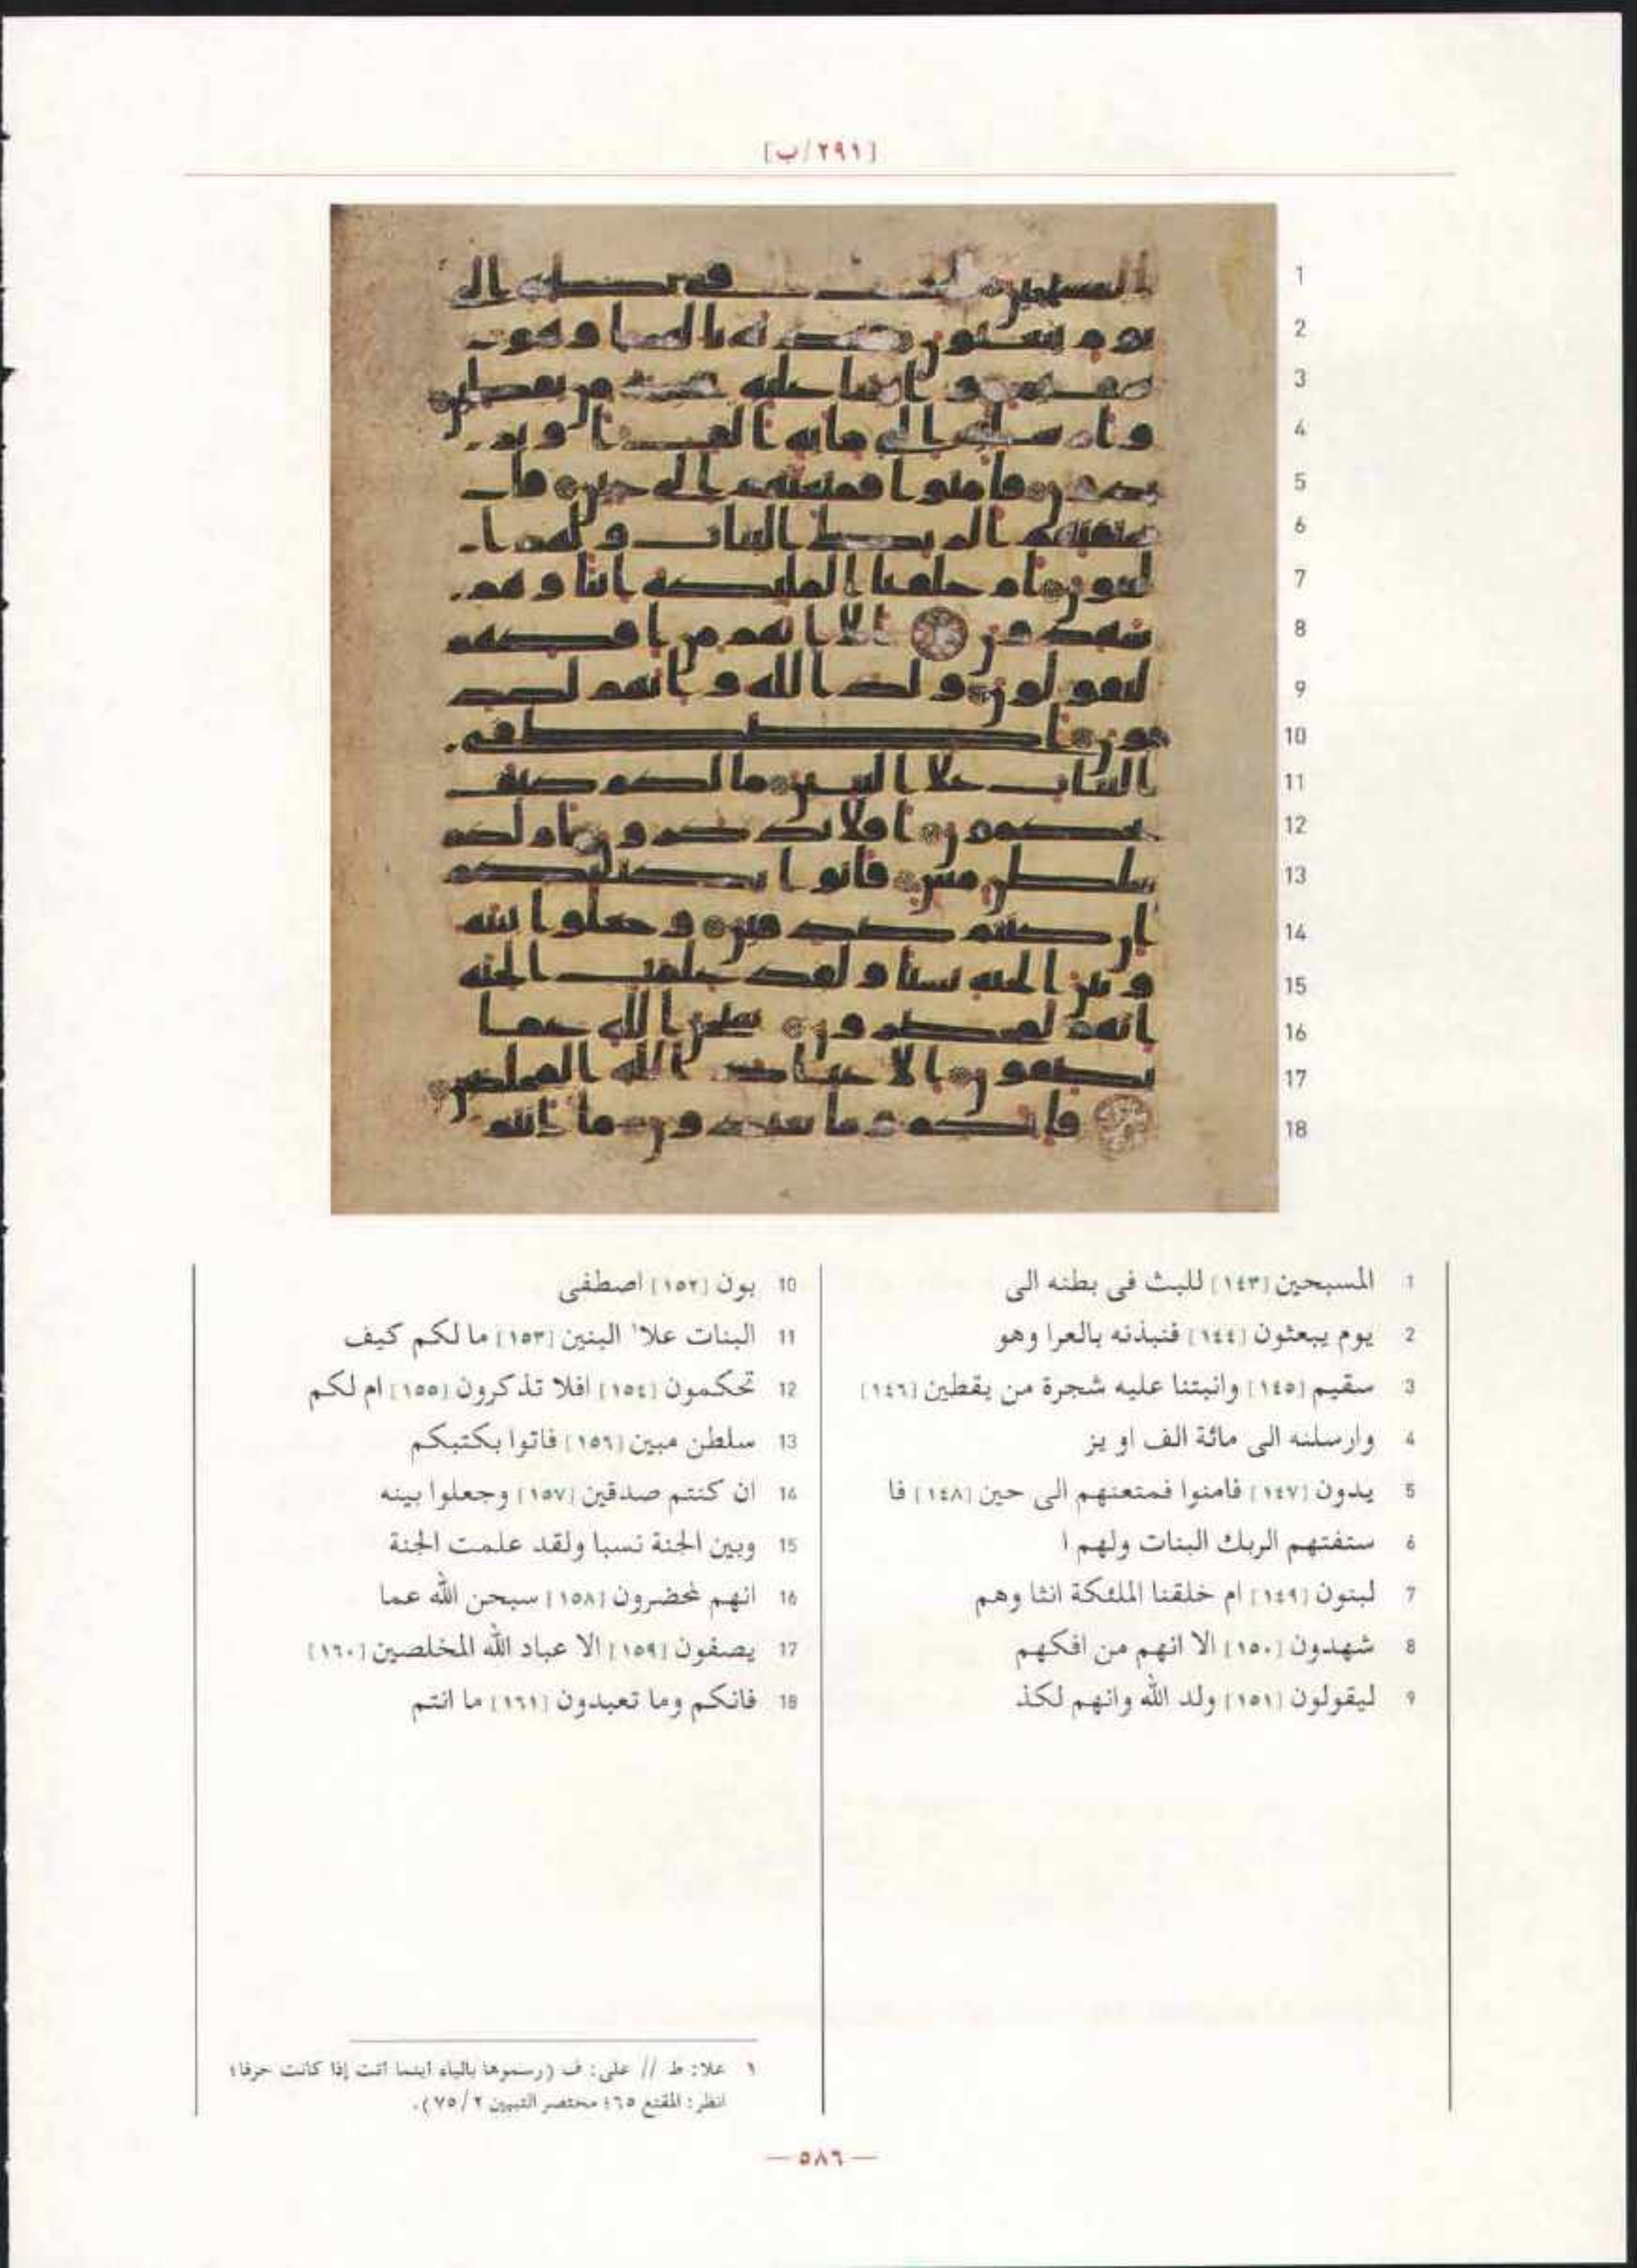 [٢٩١/ب]
1
2
3
4
5
6
7
8
9
10
11
12
13
14
15
16
17
18
1 المسبحين [١٤٣] للبث فى بطنه الى
2 يوم يبعثون [١٤٤] فنبذنه بالعرا وهو
3 سقيم [١٤٥] وانبتنا عليه شجرة من يقطين [١٤٦]
4 وارسلنه الى مائة الف او يز
5 يدون [١٤٧] فامنوا فمتعنهم الى حين [١٤٨] فا
6 ستفتهم الربك البنات ولهم ا
7 لبنون [١٤٩] ام خلقنا الملئكة انثا وهم
8 شهدون [١٥٠] الا انهم من افكهم
9 ليقولون [١٥١] ولد الله وانهم لكذ
10 بون [١٥٢] اصطفى
11 البنات علا١ البنين [١٥٣] ما لكم كيف
12 تحكمون [١٥٤] افلا تذكرون [١٥٥] ام لكم
13 سلطن مبين [١٥٦] فاتوا بكتبكم
14 ان كنتم صدقين [١٥٧] وجعلوا بينه
15 وبين الجنة نسبا ولقد علمت الجنة
16 انهم لمحضرون [١٥٨] سبحن الله عما
17 يصفون [١٥٩] الا عباد الله المخلصين [١٦٠]
18 فانكم وما تعبدون [١٦١] ما انتم
١ علا: ط // على: ف (رسموها بالياء اينما اتت إذا كانت حرفا؛
انظر: المقنع ٦٥؛ مختصر التبيين ٢/ ٧٥).
— ٥٨٦ —